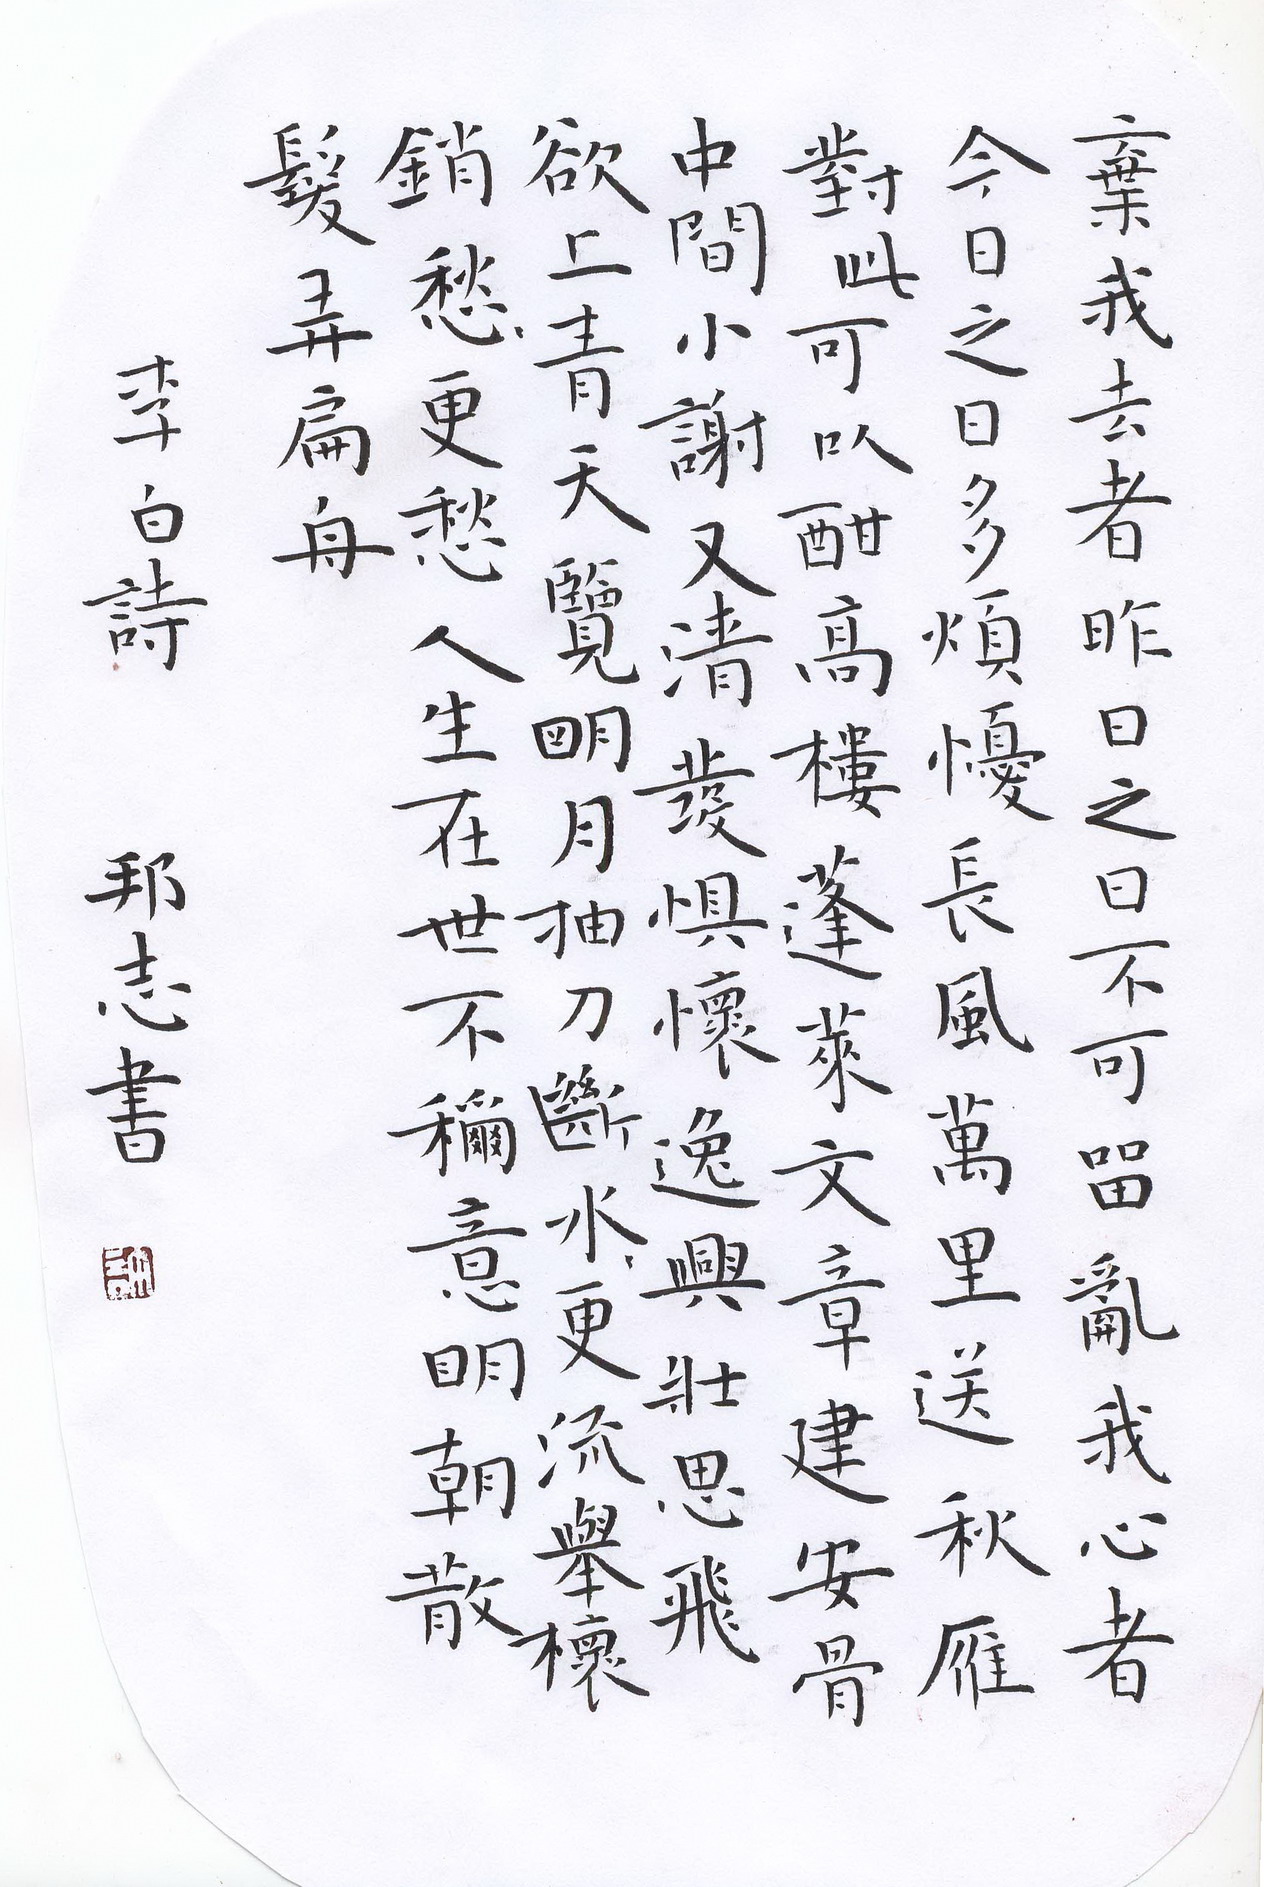 棄我去者昨日之日不可留亂我心者
今日之日多煩懮長風萬里送秋雁
對此可以酣高樓蓬萊文章建安骨
中間小謝又清發惧懷逸興壯思飛
欲上青天覽朙月抽刀斷水、更流舉櫰
銷愁、更愁人生在世不稱意眀朝散
髮弄扁舟
李白詩 邦志書